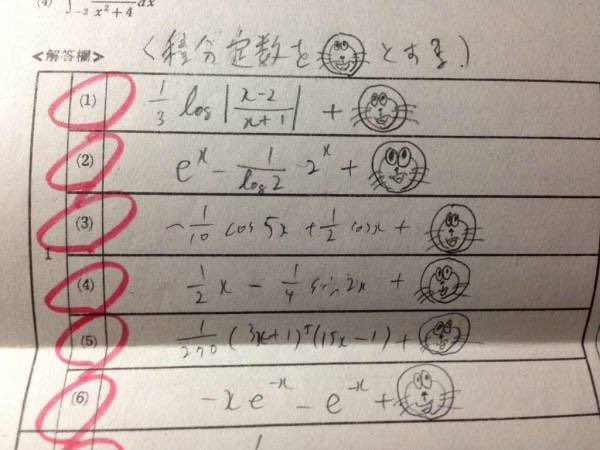 (4) ∫₋₂ x²+4 dx
<解答欄> (積分定数を とする.)
1
(1) 1/3 log |x-2/x+1| +
(2) eˣ - 1/log2 · 2ˣ +
(3) -1/10 cos 5x + 1/2 cosx +
(4) 1/2 x - 1/4 sin 2x +
(5) 1/270 (3x+1)⁵(15x-1) +
(6) -xe⁻ˣ - e⁻ˣ +